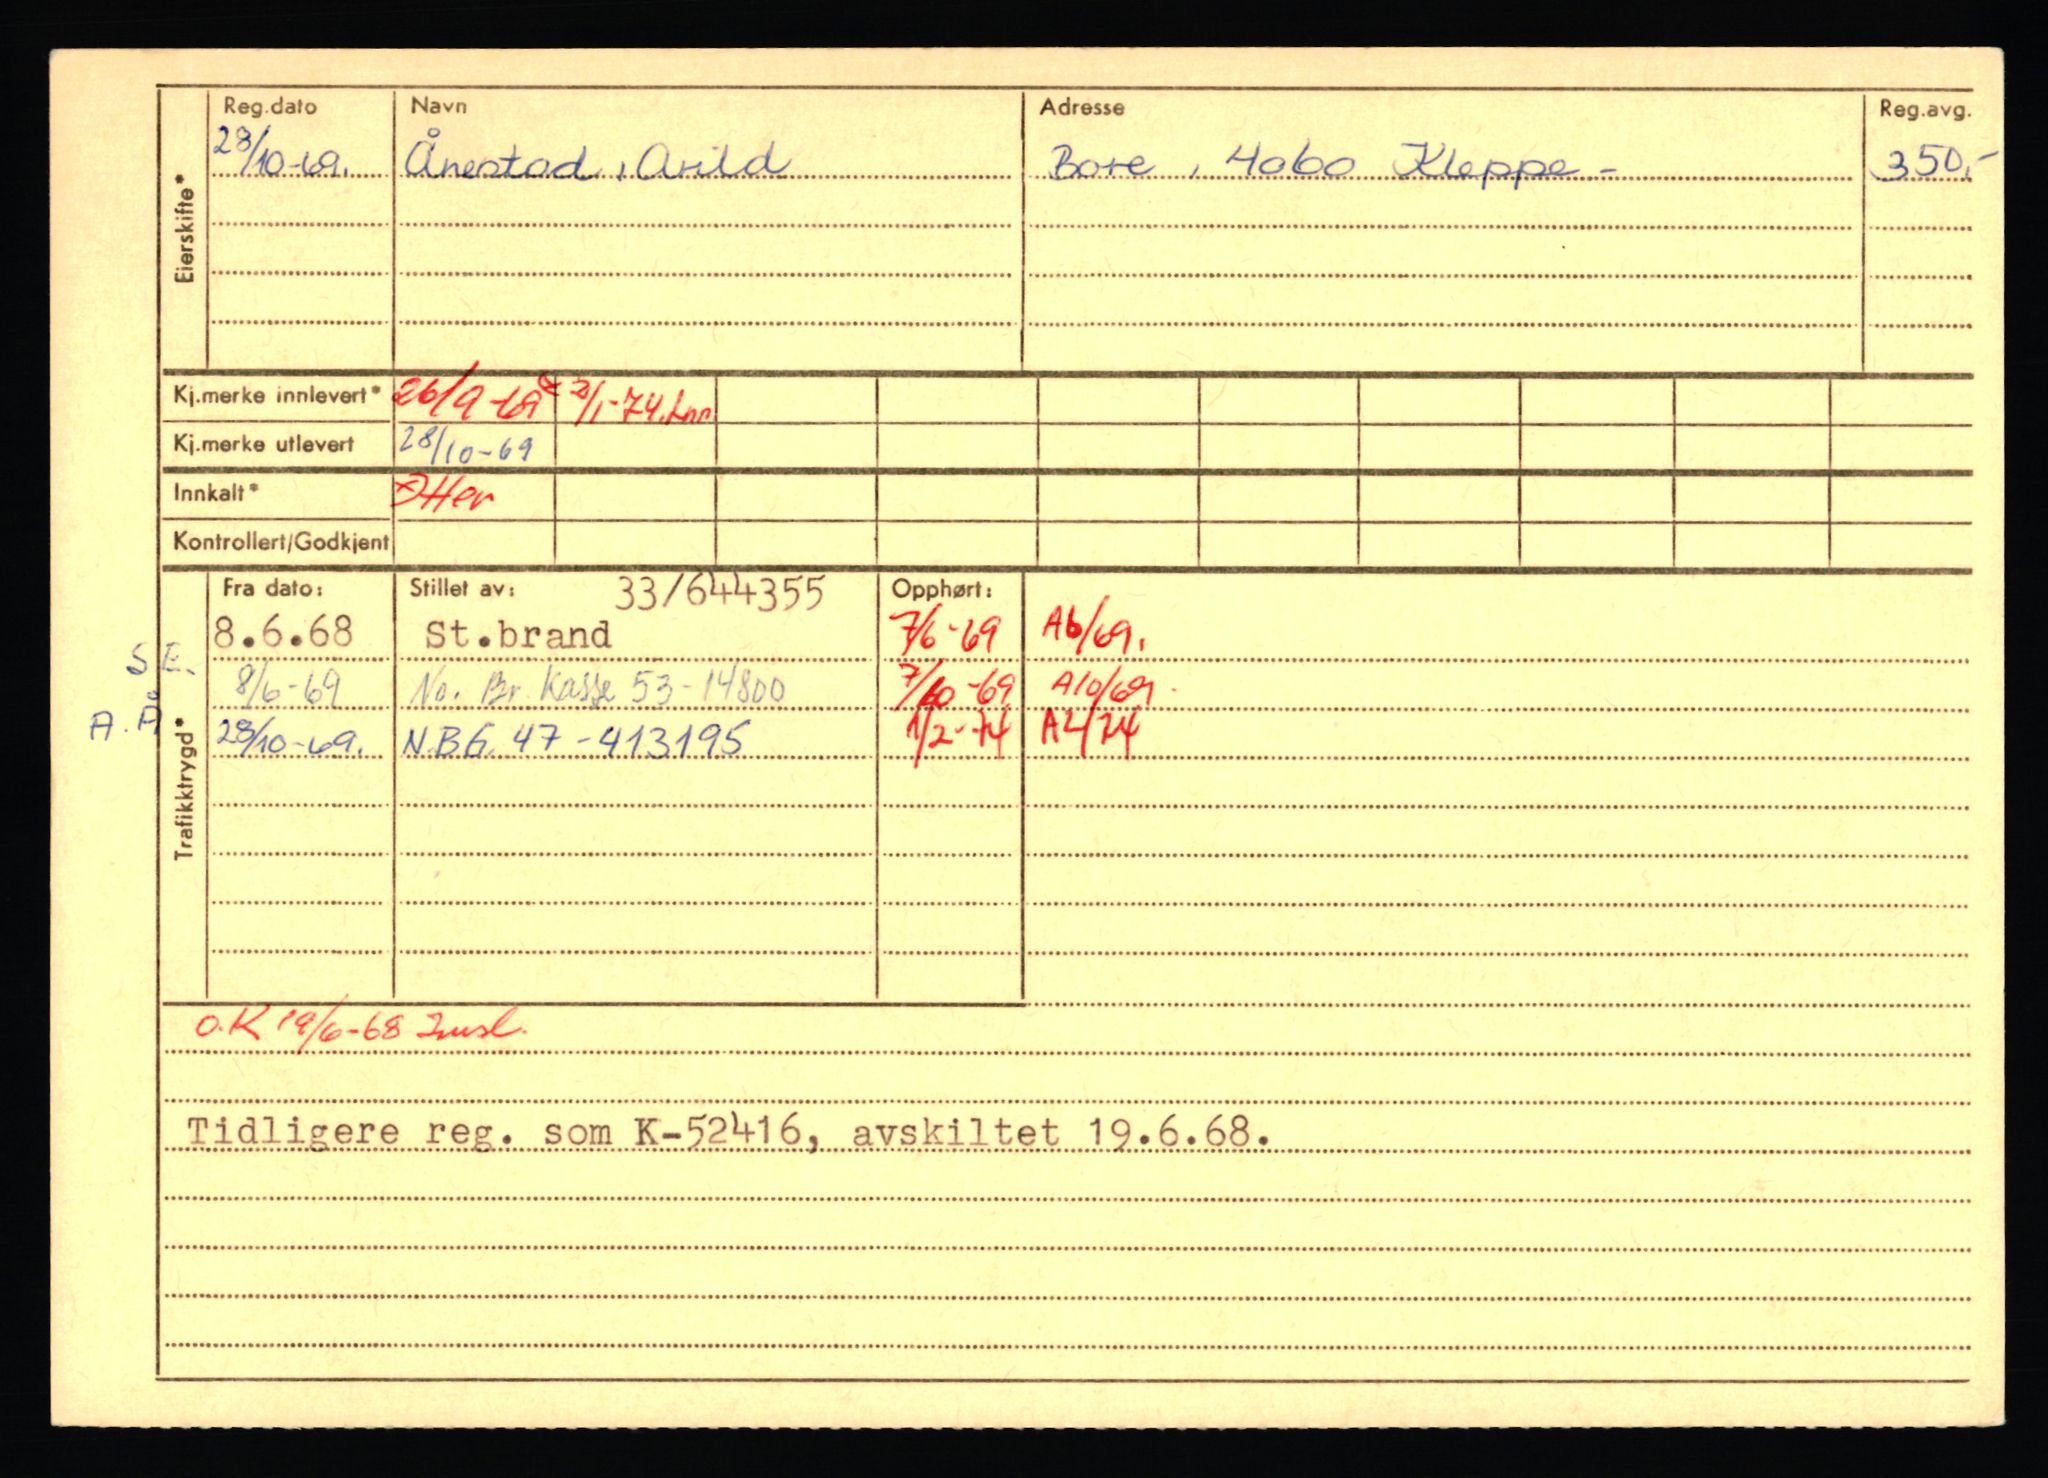 Reg.dato Navn Adresse Reg.avg.
28/10-69. Ånestad, Arild Bore, 4060 Kleppe - 350,-
Eierskifte*
Kj.merke innlevert* 26/9-69 /1-74.
Kj.merke utlevert 28/10-69
Innkalt*
Kontrollert/Godkjent
Fra dato: Stillet av: 33/644355 Opphørt:
8.6.68 St.brand 7/6-69 A6/69.
S.E. 8/6-69 No. Br. Kasse 53-14800 7/10-69 A10/69.
A.Å 28/10-69. N.B.G. 47-413195 1/2-74 A2/74
Trafikktrygd*
O.K 19/6-68
Tidligere reg. som K-52416, avskiltet 19.6.68.